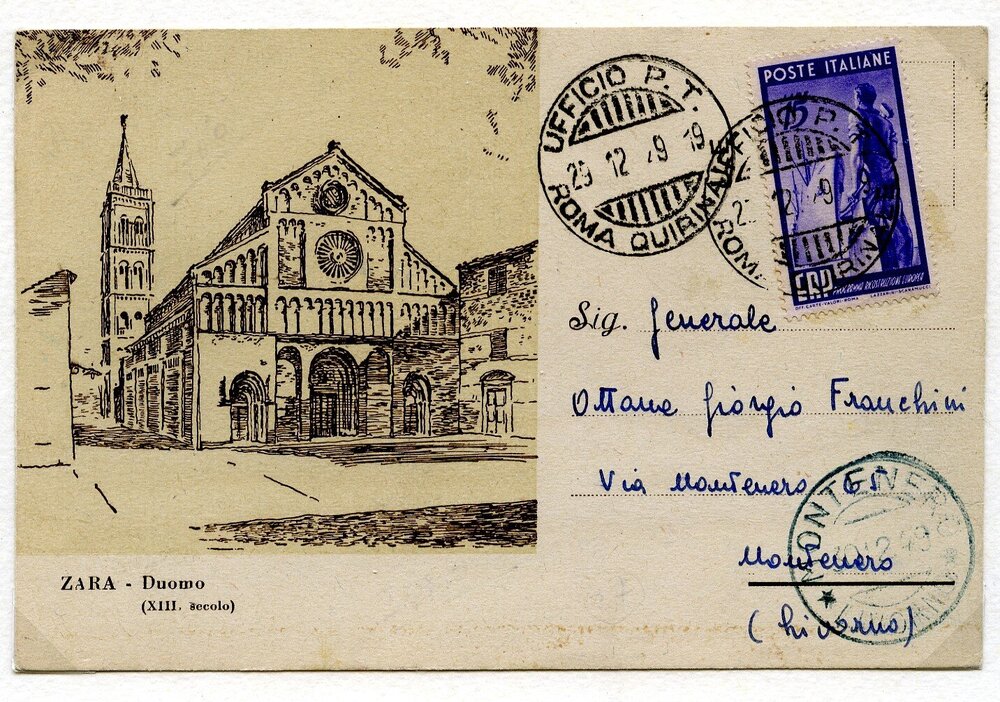 ZARA - Duomo
(XIII. secolo)
UFFICIO P. T.
29 12 49 19
ROMA QUIRINALE
POSTE ITALIANE
15
ERP
PROGRAMMA RICOSTRUZIONE EUROPEA
OFF. CARTE-VALORI-ROMA
Sig. Generale
Ottone Giorgio Franchini
Via Montenero
Montenero
(Livorno)
MONTENERO
12 49